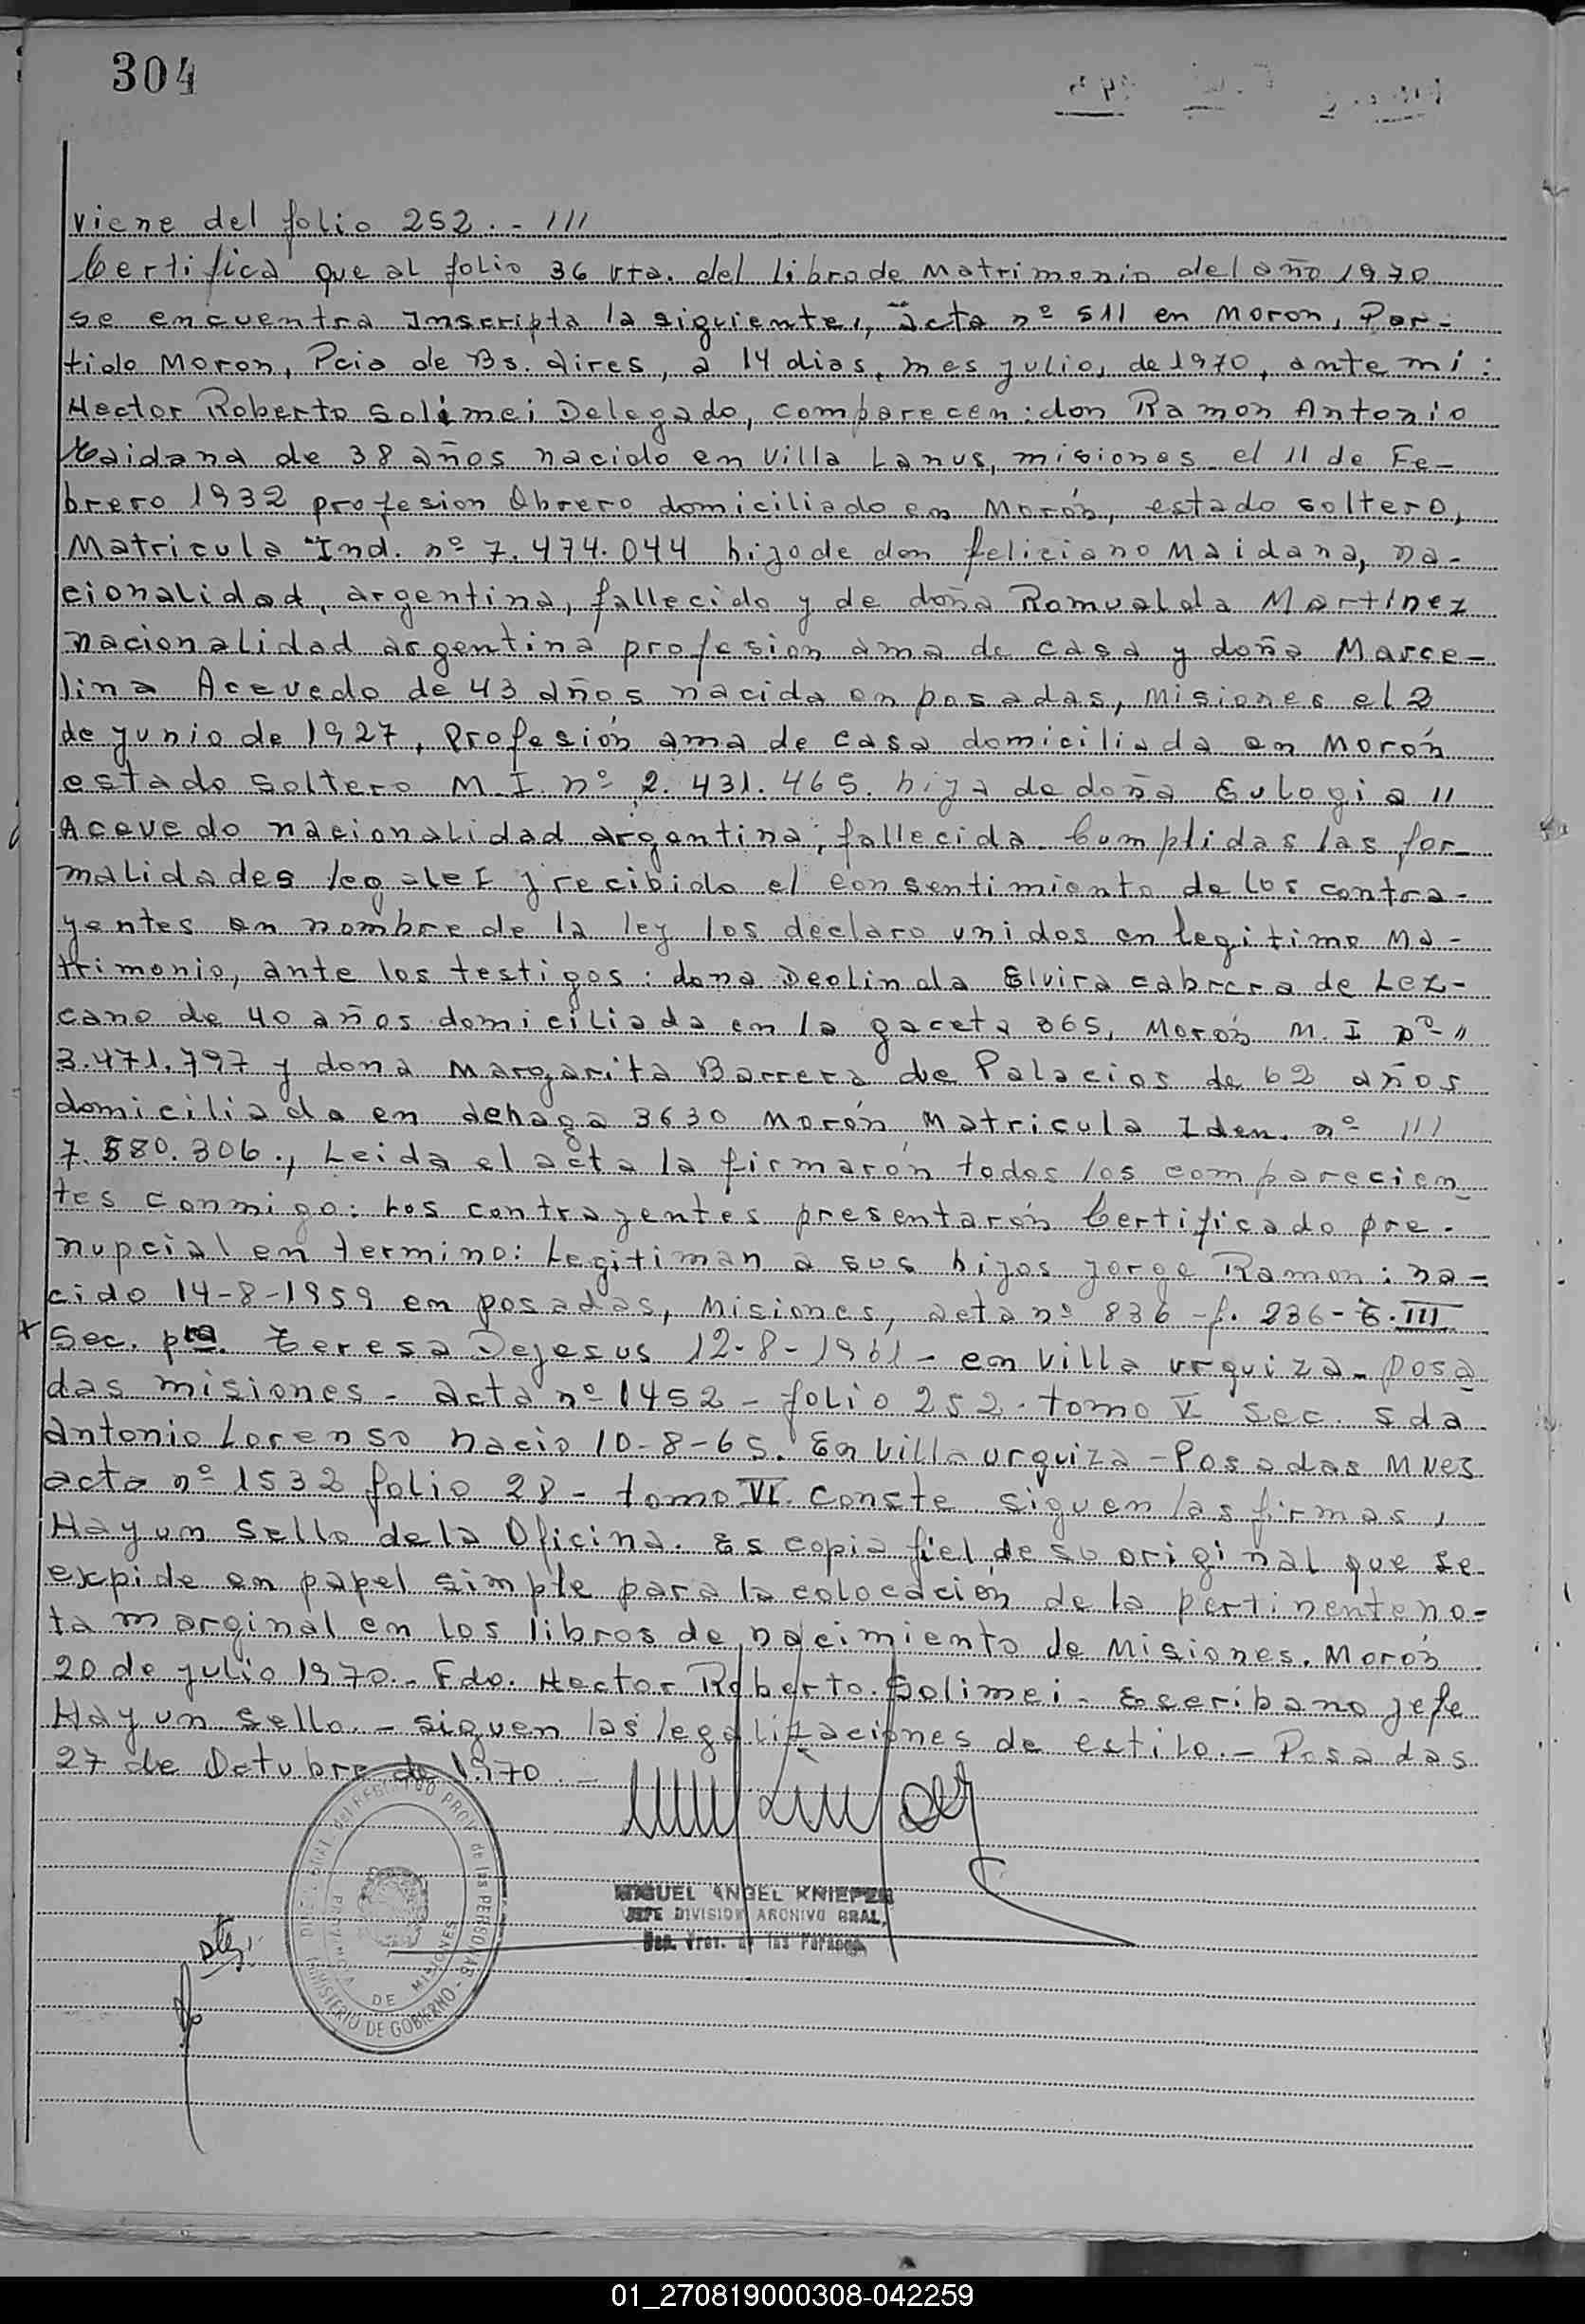 304
viene del folio 252.- ///
Certifica que al folio 36 vta. del Libro de Matrimonio del año 1970
se encuentra Inscripta la siguiente, acta nº 511 en Moron, Par-
tido Moron, Pcia de Bs. Aires, a 14 dias, mes julio, de 1970, ante mi:
Hector Roberto Solimei Delegado, comparecen: don Ramon Antonio
Maidana de 38 años nacido en Villa Lanus, misiones el 11 de Fe-
brero 1932 profesion Obrero domiciliado en Morón, estado soltero,
Matricula Ind. nº 7.474.044 hijo de don feliciano Maidana, na-
cionalidad, argentina, fallecido y de doña Romualda Martinez
nacionalidad argentina profesion ama de casa y doña Marce-
lina Acevedo de 43 años nacida en posadas, Misiones el 2
de junio de 1927, Profesión ama de casa domiciliada en Morón
estado soltero M.I. nº 2.431.465. hija de doña Eulogia //
Acevedo nacionalidad argentina, fallecida. Cumplidas las for-
malidades legales y recibido el consentimiento de los contra-
yentes en nombre de la ley los declaro unidos en legitimo Ma-
trimonio, ante los testigos: dona Deolinda Elvira cabrera de Lez-
cano de 40 años domiciliada en la gaceta 365, Morón M.I nº //
3.471.797 y dona Margarita Barrera de Palacios de 62 años
domiciliada en dehaga 3630 Morón Matricula Iden. nº ///
7.580.306., Leida el acta la firmarón todos los comparecien
tes conmigo: Los contrayentes presentarón Certificado pre-
nupcial en termino: Legitiman a sus hijos jorge Ramon: na-
cido 14-8-1959 en posadas, Misiones, acta nº 836 -f. 236- t. III
x Sec. pra. Teresa Dejesus 12-8-1961- en villa urquiza- posa
das misiones - acta nº 1452 - folio 252. tomo V sec. sda
Antonio Lorenso nacio 10-8-65. En villa urquiza - Posadas Mnes
acta nº 1532 folio 28 - tomo VI. Conste. siguen las firmas,
Hay un Sello de la Oficina. Es copia fiel de su original que se
expide en papel simple para la colocación de la pertinente no-
ta marginal en los libros de nacimiento de Misiones. Morón
20 de julio 1970.- Fdo. Hector Roberto Solimei - Escribano jefe
Hay un sello. - siguen las legalizaciones de estilo. - Posadas
27 de Octubre de 1970. -
MIGUEL ANGEL KNIEPER
JEFE DIVISION ARCHIVO GRAL.
PROVINCIA DE MISIONES
MINISTERIO DE GOBIERNO
01_270819000308-042259